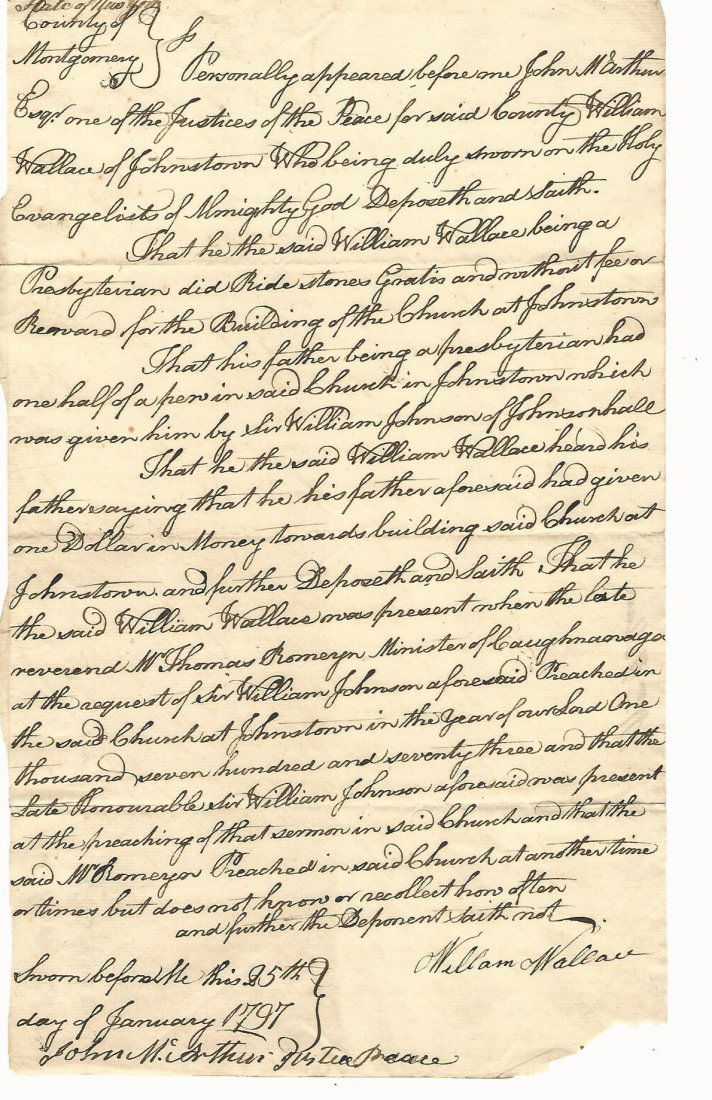 State of New York
County of
Montgomery } ss
Personally appeared before me John McArthur
Esqr one of the Justices of the Peace for said County William
Wallace of Johnstown Who being duly sworn on the Holy
Evangelists of Almighty God Deposeth and Saith.
That he the said William Wallace being a
Presbyterian did Ride stones Gratis and without fee or
Reward for the Building of the Church at Johnstown
That his father being a presbyterian had
one half of a pew in said Church in Johnstown which
was given him by Sir William Johnson of Johnsonhall
That he the said William Wallace heard his
father saying that he his father aforesaid had given
one Dollar in Money towards building said Church at
Johnstown and further Deposeth and Saith That he
the said William Wallace was present when the late
reverend Mr Thomas Romeryn Minister of Caughnawaga
at the request of Sir William Johnson aforesaid Preached in
the said Church at Johnstown in the Year of our Lord One
thousand seven hundred and seventy three and that the
Late Honourable Sir William Johnson aforesaid was present
at the preaching of that sermon in said Church and that the
said Mr Romeryn Preached in said Church at another time
or times but does not know or recollect how often
and further the Deponent saith not
Willam Wallace
Sworn before Me this 25th
day of January 1797 }
John McArthur Justice Peace